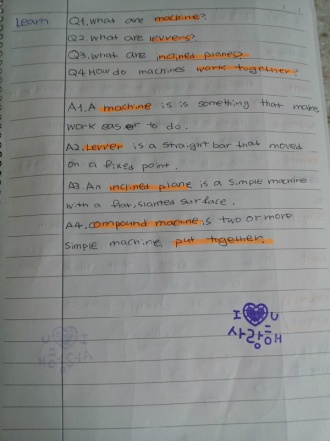 Learn
Q1. What are machine?
Q2. What are levvers?
Q3. What are inclined planes?
Q4. How do machines work together?
A1. A machine is is something that makes
work easer to do.
A2. Levver is a straight bar that moved
on a fixed point.
A3. An inclined plane is a simple machine
with a flat, slanted surface.
A4. compound machine is two or more
simple machine put together.
I U
사랑해